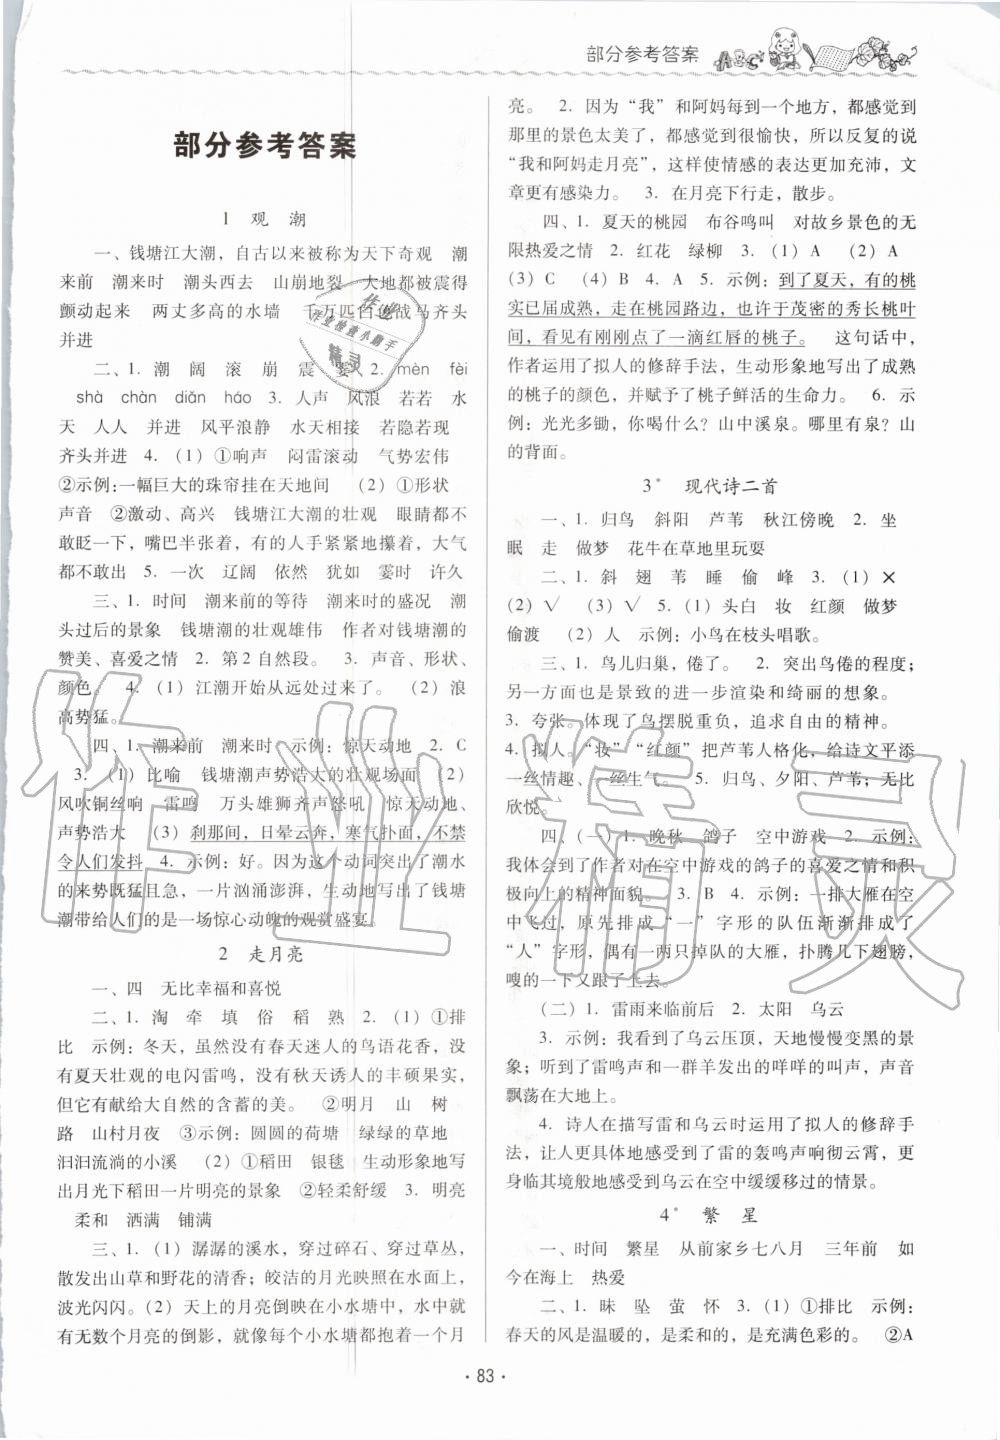 部分参考答案
部分参考答案
1 观 潮
一、钱塘江大潮，自古以来被称为天下奇观 潮
来前 潮来时 潮头西去 山崩地裂 大地都被震得
颤动起来 两丈多高的水墙 千万匹白色战马齐头
并进
二、1. 潮 阔 滚 崩 震 霎 2. mèn fèi
shà chàn diān háo 3. 人声 风浪 若若 水
天 人人 并进 风平浪静 水天相接 若隐若现
齐头并进 4. （1）①响声 闷雷滚动 气势宏伟
②示例：一幅巨大的珠帘挂在天地间 （2）①形状
声音 ②激动、高兴 钱塘江大潮的壮观 眼睛都不
敢眨一下，嘴巴半张着，有的人手紧紧地攥着，大气
都不敢出 5. 一次 辽阔 依然 犹如 霎时 许久
三、1. 时间 潮来前的等待 潮来时的盛况 潮
头过后的景象 钱塘潮的壮观雄伟 作者对钱塘潮的
赞美、喜爱之情 2. 第 2 自然段。 3. 声音、形状、
颜色。 4. （1）江潮开始从远处过来了。 （2）浪
高势猛。
四、1. 潮来前 潮来时 示例：惊天动地 2. C
3. （1）比喻 钱塘潮声势浩大的壮观场面 （2）
风吹铜丝响 雷鸣 万头雄狮齐声怒吼 惊天动地、
声势浩大 （3）刹那间，日晕云奔，寒气扑面，不禁
令人们发抖 4. 示例：好。因为这个动词突出了潮水
的来势既猛且急，一片汹涌澎湃，生动地写出了钱塘
潮带给人们的是一场惊心动魄的观赏盛宴。
2 走月亮
一、四 无比幸福和喜悦
二、1. 淘 牵 填 俗 稻 熟 2. （1）①排
比 示例：冬天，虽然没有春天迷人的鸟语花香，没
有夏天壮观的电闪雷鸣，没有秋天诱人的丰硕果实，
但它有献给大自然的含蓄的美。 ②明月 山 树
路 山村月夜 ③示例：圆圆的荷塘 绿绿的草地
汩汩流淌的小溪 （2）①稻田 银毯 生动形象地写
出月光下稻田一片明亮的景象 ②轻柔舒缓 3. 明亮
柔和 洒满 铺满
三、1. （1）潺潺的溪水，穿过碎石、穿过草丛，
散发出山草和野花的清香；皎洁的月光映照在水面上，
波光闪闪。（2）天上的月亮倒映在小水塘中，水中就
有无数个月亮的倒影，就像每个小水塘都抱着一个月
亮。 2. 因为“我”和阿妈每到一个地方，都感觉到
那里的景色太美了，都感觉到很愉快，所以反复的说
“我和阿妈走月亮”，这样使情感的表达更加充沛，文
章更有感染力。 3. 在月亮下行走，散步。
四、1. 夏天的桃园 布谷鸣叫 对故乡景色的无
限热爱之情 2. 红花 绿柳 3. （1）A （2）A
（3）C （4）B 4. A 5. 示例：到了夏天，有的桃
实已届成熟，走在桃园路边，也许于茂密的秀长桃叶
间，看见有刚刚点了一滴红唇的桃子。 这句话中，
作者运用了拟人的修辞手法，生动形象地写出了成熟
的桃子的颜色，并赋予了桃子鲜活的生命力。 6. 示
例：光光多锄，你喝什么？山中溪泉。哪里有泉？山
的背面。
3* 现代诗二首
一、1. 归鸟 斜阳 芦苇 秋江傍晚 2. 坐
眠 走 做梦 花牛在草地里玩耍
二、1. 斜 翅 苇 睡 偷 峰 3. （1）×
（2）√ （3）√ 5. （1）头白 妆 红颜 做梦
偷渡 （2）人 示例：小鸟在枝头唱歌。
三、1. 鸟儿归巢，倦了。 2. 突出鸟倦的程度；
另一方面也是景致的进一步渲染和绮丽的想象。
3. 夸张。体现了鸟摆脱重负，追求自由的精神。
4. 拟人。“妆”“红颜”把芦苇人格化，给诗文平添
一丝情趣、一丝生气。 5. 归鸟、夕阳、芦苇；无比
欣悦。
四、（一）1. 晚秋 鸽子 空中游戏 2. 示例：
我体会到了作者对在空中游戏的鸽子的喜爱之情和积
极向上的精神面貌。 3. B 4. 示例：一排大雁在空
中飞过，原先排成“一”字形的队伍渐渐排成了
“人”字形，偶有一两只掉队的大雁，扑腾几下翅膀，
嗖的一下又跟了上去。
（二）1. 雷雨来临前后 2. 太阳 乌云
3. 示例：我看到了乌云压顶，天地慢慢变黑的景
象；听到了雷鸣声和一群羊发出的咩咩的叫声，声音
飘荡在大地上。
4. 诗人在描写雷和乌云时运用了拟人的修辞手
法，让人更具体地感受到了雷的轰鸣声响彻云霄，更
身临其境般地感受到乌云在空中缓缓移过的情景。
4* 繁 星
一、时间 繁星 从前家乡七八月 三年前 如
今在海上 热爱
二、1. 昧 坠 萤 怀 3. （1）①排比 示例：
春天的风是温暖的，是柔和的，是充满色彩的。 ②A
· 83 ·
作业精灵